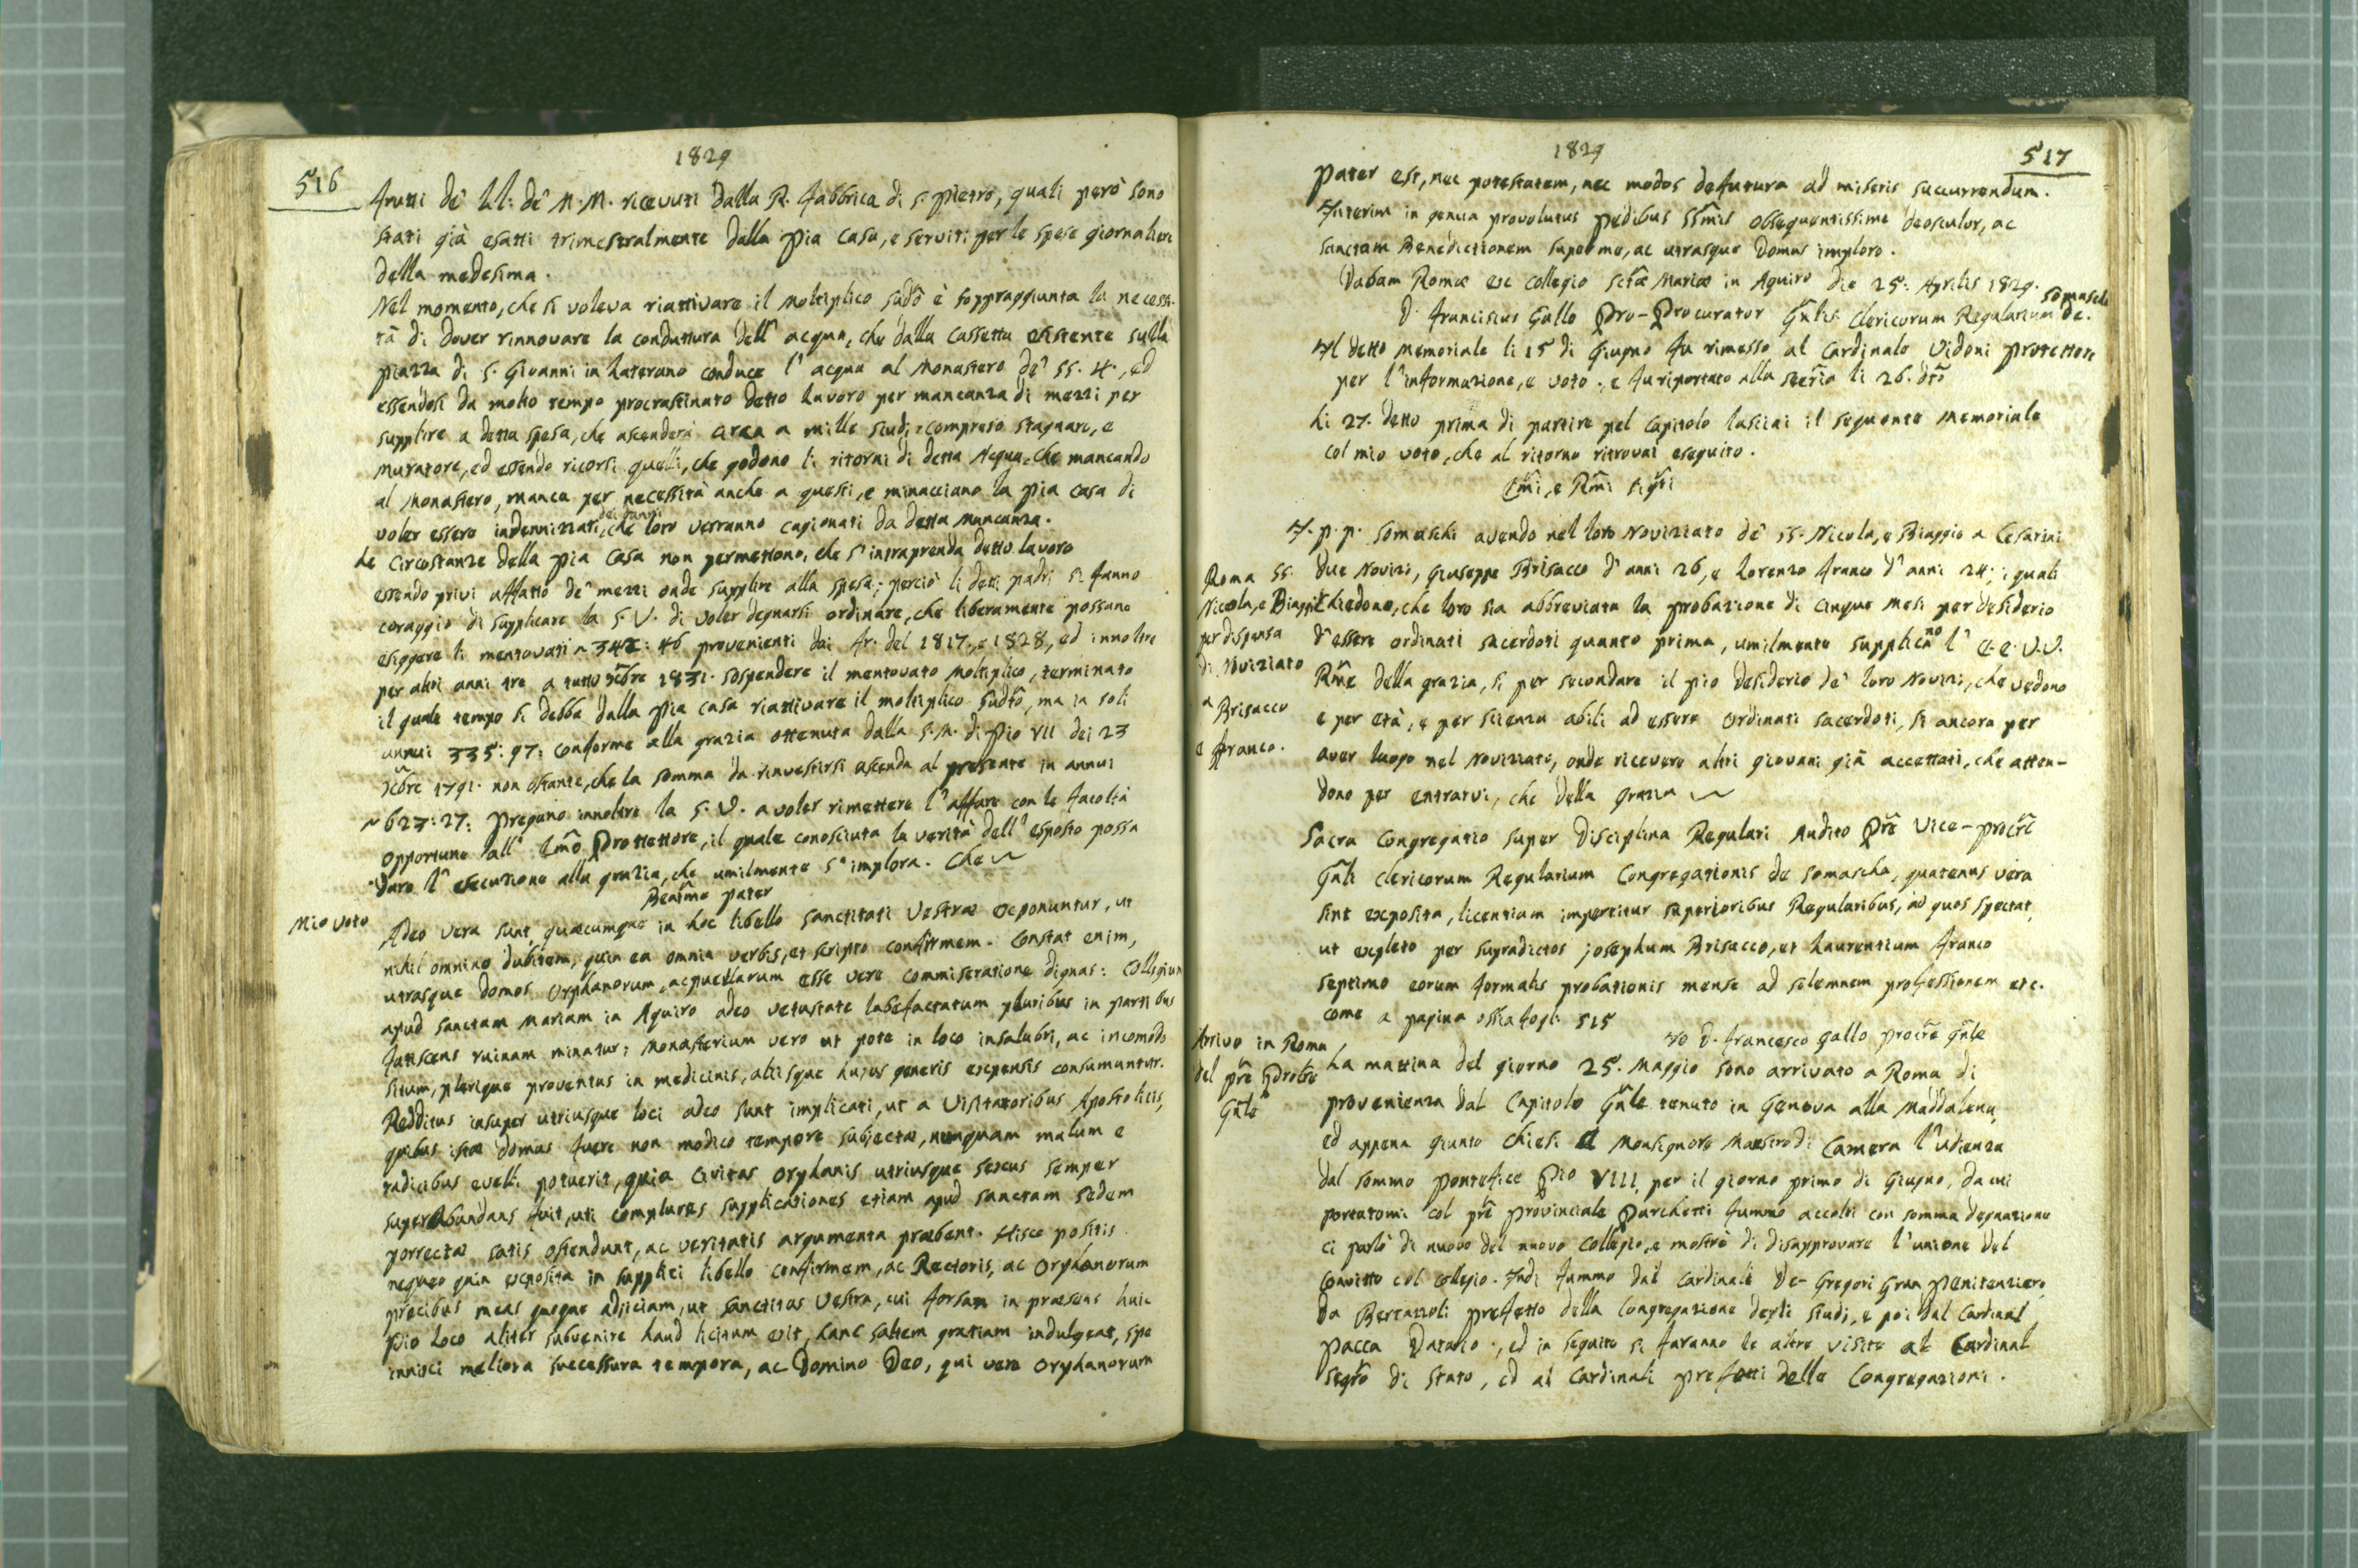 1829
516
frutti de' LL: de' M. M. ricevuti dalla R. Fabbrica di S. Pietro, quali però sono
stati già esatti trimestralmente dalla Pia Casa, e serviti per le spese giornaliere
della medesima.
Nel momento, che si voleva riattivare il Moltiplico sudō è soppraggiunta la necessi-
tà di dover rinnovare la conduttura dell' acqua, che dalla Cassetta esistente sulla
piazza di S. Giovanni in Laterano conduce l' acqua al Monastero de' SS. 4., ed
essendosi da molto tempo procrastinato detto lavoro per mancanza di mezzi per
supplire a detta spesa, che ascenderà circa a mille scudi compreso stagnaro, e
muratore, ed essendo ricorsi quelli, che godono li ritorni di detta Acqua, che mancando
al Monastero, manca per necessità anche a questi, e minacciano la pia casa di
voler essere indennizzati dei danni, che loro verranno cagionati da detta mancanza.
Le Circostanze della Pia Casa non permettono, che s' intraprenda detto lavoro
essendo privi affatto de' mezzi onde supplire alla spesa; perciò li detti padri si fanno
coraggio di supplicare la S. V. di voler degnarsi ordinare, che liberamente possano
esiggere li mentovati 342: 46 provenienti dai fr. del 1817., e 1828, ed innoltre
per altri anni tre a tutto Xbre 1831. sospendere il mentovato Moltiplico, terminato
il quale tempo si debba dalla Pia Casa riattivare il moltiplico sudtō, ma in soli
annui 335: 97: conforme alla grazia ottenuta dalla S. M. di Pio VII dei 23
Xbre 1791. non ostante, che la somma da rinvestirsi ascenda al presente in annui
623: 27: Pregano innoltre la S. V. a voler rimettere l' affare con le facoltà
opportune all' Emō Prottettore, il quale conosciuta la verità dell' esposto possa
dare l' esecuzione alla grazia, che umilmente s' implora. Che
Beatīme Pater
Mio voto
Adeo vera sunt, quæcumque in hoc libello Sanctitati Vestræ exponuntur, ut
nihil omnino dubitem, quin ea omnia verbis, et scripto confirmem. Constat enim,
utrasque domos Orphanorum, ac puellarum esse vere commiseratione dignas: Collegium
apud Sanctam Mariam in Aquiro adeo vetustate labefactatum pluribus in partibus
fatiscens ruinam minatur; Monasterium vero ut pote in loco insalubri, ac incomodo
situm, plerique proventus in medicinis, aliisque hujus generis expensis consumantur.
Redditus insuper utriusque loci adeo sunt implicati, ut a Visitatoribus Apostolicis,
quibus istæ domus fuere non modico tempore subjectæ, nunquam malum e
radicibus evelli potuerit, quia Civitas Orphanis utriusque sexus semper
superabundans fuit, uti complures supplicationes etiam apud Sanctam Sedem
porrectæ satis ostendunt, ac veritatis argumenta præbent. Hisce positis
nequeo quin exposita in supplici libello confirmem, ac Rectoris, ac Orphanorum
precibus meas quoque adjiciam, ut Sanctitas Vestra, cui forsan in præsens huic
Pio Loco aliter subvenire haud licitum erit, hanc saltem gratiam indulgeat, spe
innisci meliora successura tempora, ac Domino Deo, qui vere Orphanorum
1829
517
Pater est, nec potestatem, nec modos defutura ad miseris succurrendum.
Interim in genua provolutus pedibus SSmis obsequentissime deosculor, ac
Sanctam Benedictionem super me, ac utrasque Domus imploro.
Dabam Romæ ex Collegio Sctæ Mariæ in Aquiro die 25. Aprilis 1829.
D. Franciscus Gallo Pro-Procurator Gn̄lis Clericorum Regularium de. Somasch.
Il detto Memoriale li 15 di Giugno fu rimesso al Cardinale Vidoni Protettore
per l' informazione, e voto, e fu riportato alla Seḡria li 26. dtō
Li 27. detto prima di partire pel Capitolo lasciai il seguente Memoriale
col mio voto, che al ritorno ritrovai eseguito.
Em̄i, e Rm̄i Sigr̄i
I. P. P. Somaschi avendo nel loro Noviziato de' SS. Nicola, e Biaggio a Cesarini
Roma SS.
Nicola, e Biaggio
per dispensa
di Noviziato
a Brisacco
e Franco.
due Novizi, Giuseppe Brisacco d' anni 26, e Lorenzo Franco d' anni 24; i quali
chiedono, che loro sia abbreviata la probazione di cinque mesi per desiderio
d' essere ordinati sacerdoti quanto prima, umilmente supplicano l' E. E. V. V.
Rm̄e della grazia, sì per secondare il pio desiderio de' loro Novizi, che vedono
e per età, e per scienza abili ad essere ordinati sacerdoti, sì ancora per
aver luogo nel Noviziato, onde ricevere altri giovani già accettati, che atten-
dono per entrarvi, che della grazia
Sacra Congregatio super Disciplina Regulari Audito Pr̄e Vice-Procr̄e
Gn̄li Clericorum Regularium Congregationis de Somascha, quatenus vera
sint exposita, licentiam impertitur superioribus Regularibus, ad quos spectat,
ut expleto per supradictos Josephum Brisacco, et Laurentium Franco
septimo eorum formalis probationis mense ad solemnem professionem etc.
come a pagina ossia fogl. 515
Io D. Francesco Gallo Procr̄e Gn̄le
Arrivo in Roma
del pr̄e
Gn̄le
La mattina del giorno 25. Maggio sono arrivato a Roma di
provenienza dal Capitolo Gn̄le tenuto in Genova alla Maddalena,
ed appena giunto chiesi a Monsignore Maestro di Camera l' udienza
dal sommo Pontefice Pio VIII. per il giorno primo di Giugno, da cui
portatomi col pr̄e Provinciale Parchetti fummo accolti con somma degnazione
ci parlò di nuovo del nuovo Collegio, e mostrò di disapprovare l' unione del
Convitto col Collegio. Indi fummo dal Cardinale De-Gregori Gran Penitenziere,
da Bertazzoli prefetto della Congregazione degli Studi, e poi dal Cardinal
Pacca Datario, ed in seguito si faranno le altre visite al Cardinal
Segrō di Stato, ed ai Cardinali prefetti delle Congregazioni.